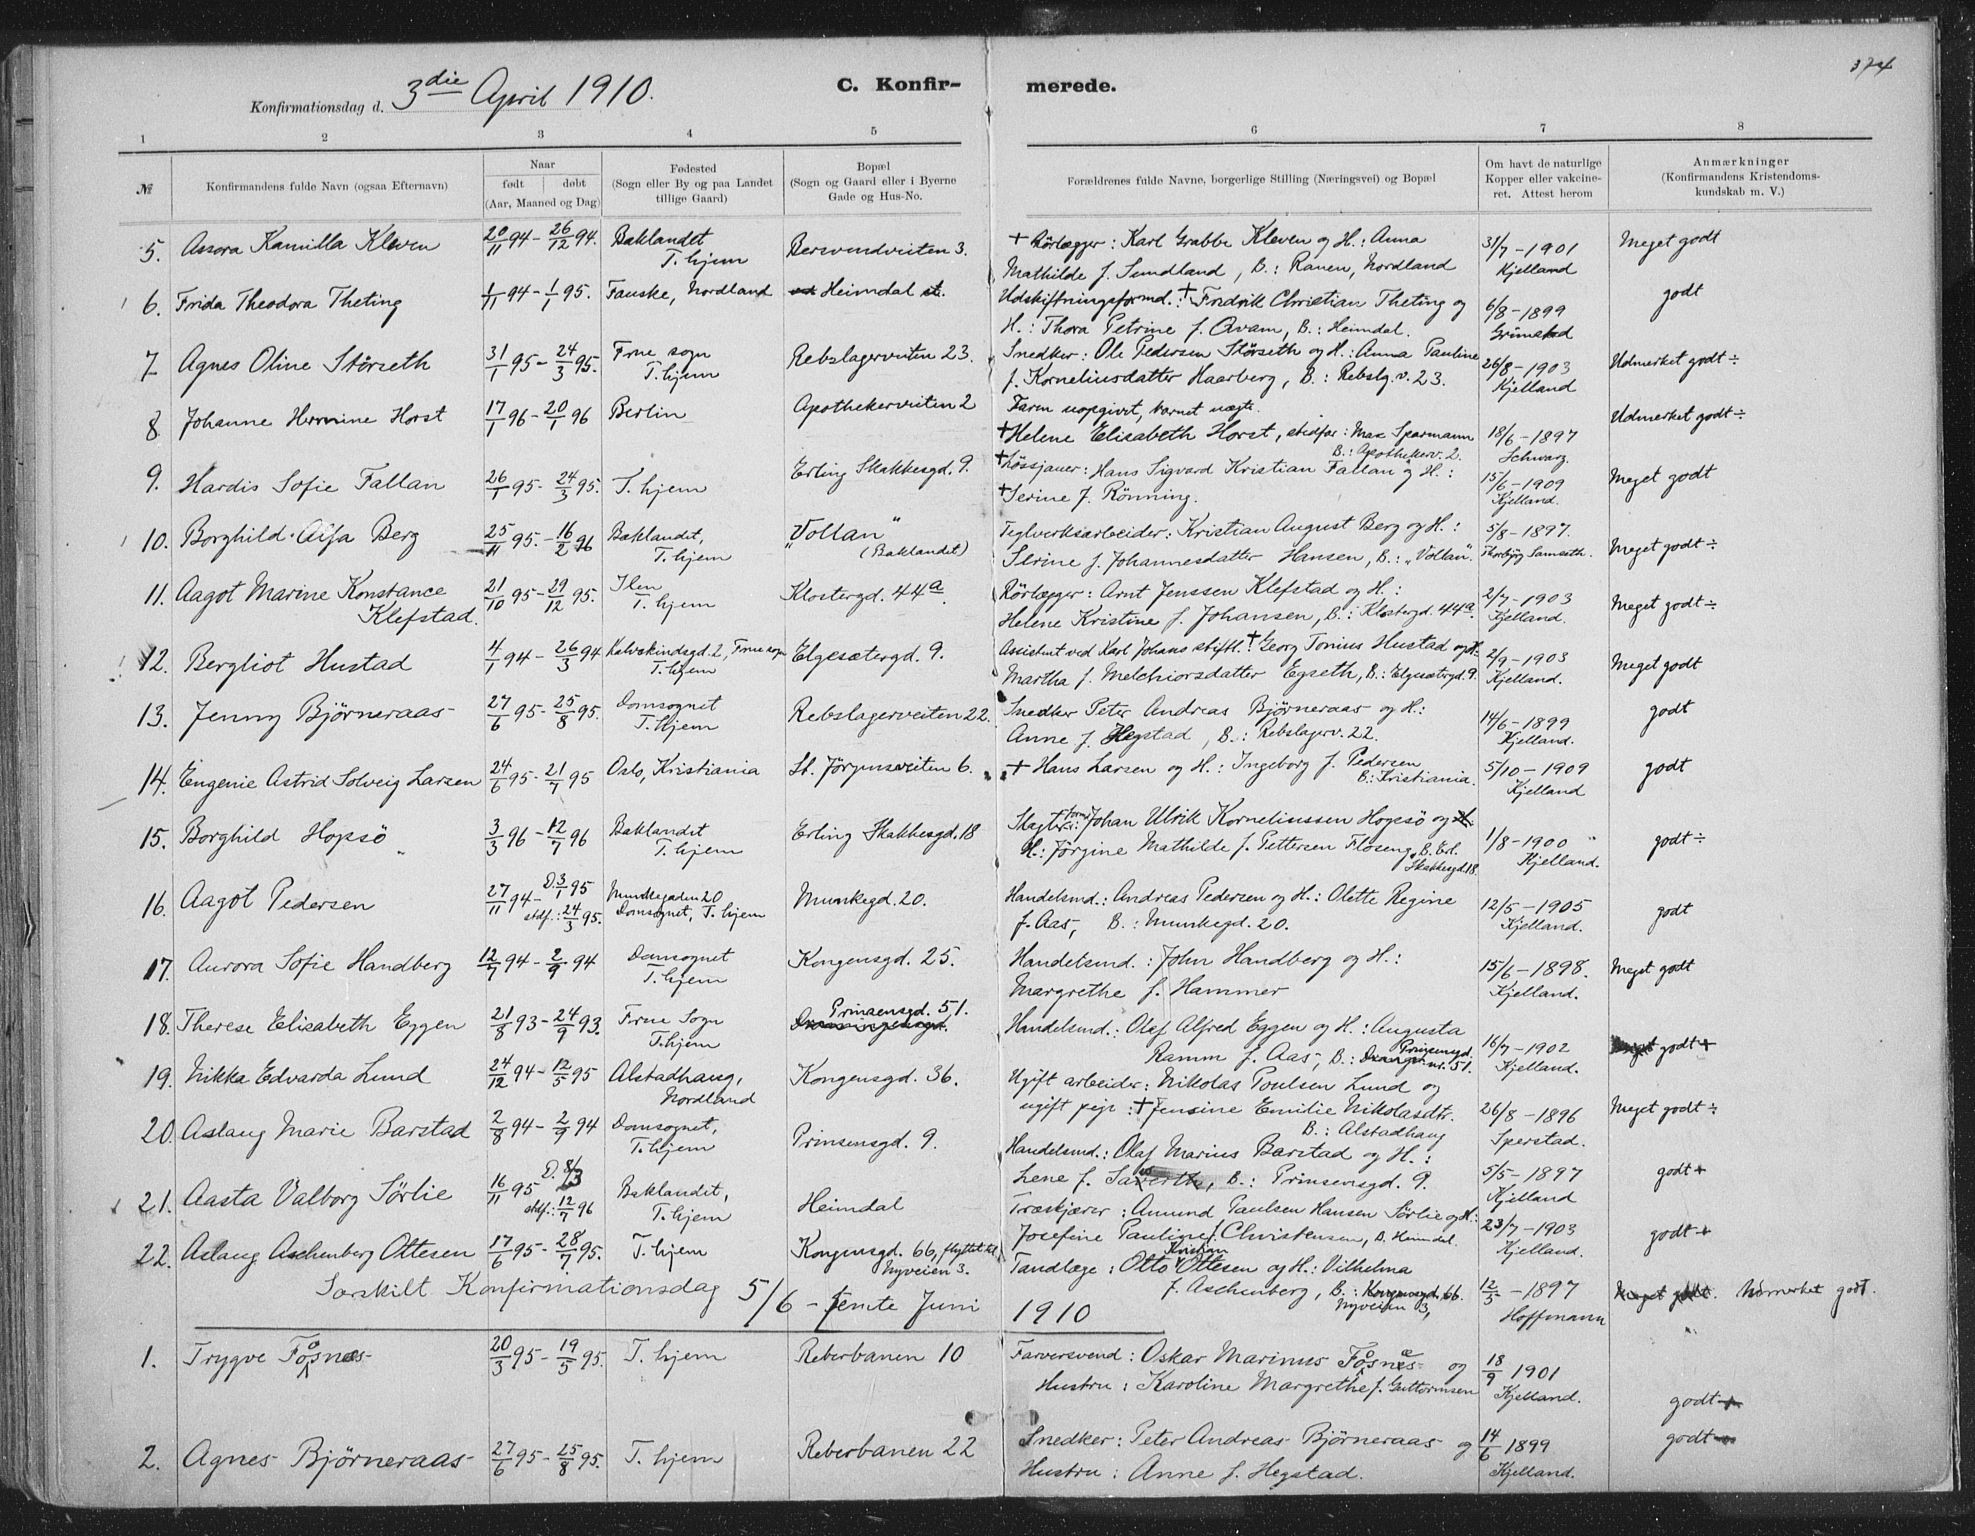 374
Konfirmationsdag d. 3die April 1910.
C. Konfirmerede.
1 2 3 4 5 6 7 8
№ | Konfirmandens fulde Navn (ogsaa Efternavn) | Naar født | døbt (Aar, Maaned og Dag) | Fødested (Sogn eller By og paa Landet tillige Gaard) | Bopæl (Sogn og Gaard eller i Byerne Gade og Hus-No. | Forældrenes fulde Navne, borgerlige Stilling (Næringsvei) og Bopæl | Om havt de naturlige Kopper eller vakcineret. Attest herom | Anmærkninger (Konfirmandens Kristendomskundskab m. V.)
5. Assora Kamilla Kleven 20/11 94 - 26/12 94. Baklandet T.hjem Bersvendveiten 3. + Rörlægger: Karl Grabbe Kleven og H.: Anna
Mathilde f. Sundland, B.: Ranen, Nordland 31/7 - 1901 Kjelland Meget godt
6. Frida Theodora Theting 1/11 94 - 1/1 95. Fauske, Nordland Heimdal st. Udskiftningsformd.: + Fredrik Christian Theting og
H.: Thora Petrine f. Qvam, B.: Heimdal. 6/8 - 1899 godt
7. Agnes Oline Störseth 31/1 95 - 24/3 95. Frue sogn T.hjem Rebslagerveiten 23. Snedker: Ole Pedersen Störseth og H.: Anna Pauline
f. Korneliusdatter Haarberg, B.: Rebslg.v. 23. 26/8 - 1903 Kjelland Udmerket godt ÷
8. Johanne Hermine Horst 17/1 96 - 20/1 96 Berlin Apothekerveiten 2 Faren uopgivet, barnet uægte.
+ Helene Elisabeth Horst, stedfar: Max Sparmann
B.: Apothekerv. 2. 18/6 - 1897 Schwarz. Udmerket godt ÷
9. Hardis Sofie Fallan 26/1 95 - 24/3 95. T.hjem Erling Skakkesgd. 9. + Løssjauer: Hans Sigvard Kristian Fallan og H.:
+ Serine f. Rönning. 15/6 - 1909 Kjelland. Meget godt
10. Borghild Alfa Berg 25/11 95. - 16/2 96 Baklandet, T.hjem "Vollan" (Baklandet) Teglverksarbeider: Kristian August Berg og H.:
Serine f. Johannesdatter Hansen, B.: "Vollan". 5/8 - 1897. Meget godt ÷
11. Aagot Marine Konstance Klefstad. 21/10 95 - 29/12 95. Ilen T.hjem Klostergd. 44a. Rörlægger: Arnt Jenssen Klefstad og H.:
Helene Kristine f. Johansen, B.: Klostergd. 44a. 2/7 - 1903 Kjelland. Meget godt ÷
12. Bergliot Hustad 4/1 94 - 26/3 94 Kalvskindsgd. 2, Frue sogn T.hjem Elgesætergd. 9. Assistent ved Karl Johans stiftl. + Georg Tonius Hustad og H.
Martha f. Melchiorsdatter Egseth, B.: Elgesætergd. 9. 2/9 - 1903 Kjelland. Meget godt
13. Jenny Björneraas 27/6 95 - 25/8 95. Domsognet T.hjem Rebslagerveiten 22. Snedker Peter Andreas Björneraas og H.:
Anne f. Hegstad, B.: Rebslagerv. 22. 14/6 - 1899 Kjelland. godt
14. Engenie Astrid Solveig Larsen 24/6 95 - 21/7 95 Oslo, Kristiania St. Jörgensveiten 6. + Hans Larsen og H.: Ingeborg f. Pedersen
B.: Kristiania. 5/10 - 1909 Kjelland godt
15. Borghild Hopsö 3/3 96 - 12/7 96 Baklandet T.hjem Erling Skakkesgd. 18 Slagter: Johan Ulrik Korneliussen Hopsö og
H.: Jörgine Mathilde f. Pettersen Floseng, B. Erl. Skakkesgd 18. 1/8 - 1900 Kjelland. godt ÷
16. Aagot Pedersen 27/11 94 - D. 3/1 95 stdf.: 24/3 95. Munkegaden 20 Domsognet, T.hjem Munkegd. 20. Handelsmd.: Andreas Pedersen og H.: Olette Regine
f. Aas, B.: Munkegd. 20. 12/5 - 1905 Kjelland. godt
17. Aurora Sofie Handberg 12/7 94 - 2/9 94 Domsognet T.hjem Kongensgd. 25. Handelsmd.: John Handberg og H.:
Margrethe f. Hammer 15/6 - 1898. Kjelland. Meget godt
18. Therese Elisabeth Eggen 21/8 93 - 24/9 93. Frue Sogn T.hjem Prinsensgd. 51. Handelsmd.: Olaf Alfred Eggen og H.: Augusta
Ramm f. Aas, B.: Prinsensgd. 51. 16/7 - 1902 Kjelland. godt +
19. Nikka Edvarda Lund 24/12 94 - 12/5 95 Alstadhaug, Nordland Kongensgd. 36. Ugift arbeider: Nikolas Poulsen Lund og
ugift pige: + Jensine Emilie Nikolasdtr.
B.: Alstadhaug 26/8 - 1896 Sperstad. Meget godt ÷
20. Aslaug Marie Barstad 2/8 94 - 2/9 94 Domsognet, T.hjem Prinsensgd. 9. Handelsmd.: Olaf Marius Barstad og H.:
Lene f. B.: Prinsensgd. 9. 5/5 - 1897 Kjelland godt +
21. Aasta Valborg Sörlie 16/11 95 D. 8/3 stdf.: 12/7 96 Baklandet, T.hjem Heimdal Træskjærer: Amund Paulsen Hansen Sörlie og H.:
Josefine Pauline f. Christensen, B. Heimdal. 23/7 - 1903 Kjelland. godt +
22. Aslaug Aschenberg Ottesen 17/6 95 - 28/7 95. T.hjem Kongensgd. 66, flyttet til Nyveien 3. Tandlæge: Otto Kristian Ottesen og H.: Vilhelma
f. Aschenberg, B.: Kongensgd. 66. Nyveien 3, 12/5 - 1897 Hoffmann Meget godt. Udmerket godt.
Særskilt Konfirmationsdag 5/6 - femte Juni 1910
1. Trygve Fosnæs 20/3 95 - 19/5 95. T.hjem Reberbanen 10 Farversvend: Oskar Marinus Fosnæs og
Hustru: Karoline Margrethe f. Guttormsen 18/9 1901 Kjelland. godt +
2. Agnes Björneraas 27/6 95 - 25/8 95. T.hjem Reberbanen 22 Snedker: Peter Andreas Björneraas og
Hustru: Anne f. Hegstad. 14/6 1899 Kjelland. godt